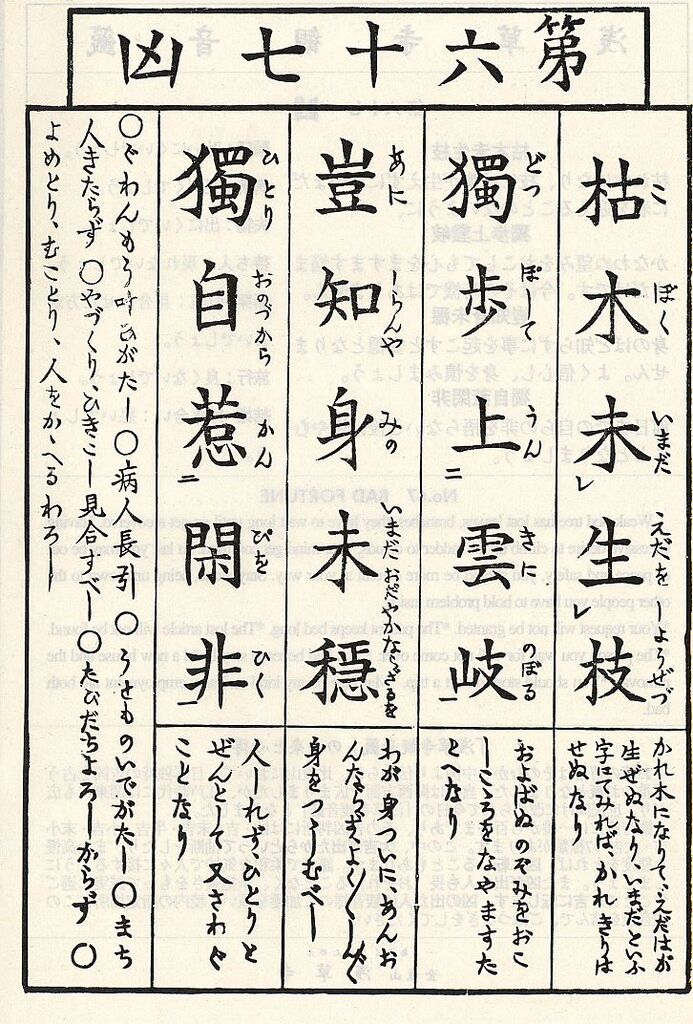 第六十七凶
枯木未生枝
こぼくいまだえだをしょうぜず
かれ木になりて、えだはが
生ぜぬなり、いまだといふ
字にてみれば、かれきりは
せぬなり
獨歩上雲岐
どつぽしてうんきにのぼる
およばぬのぞみをおこ
しこころをなやますた
とへなり
豈知身未穏
あにしらんやみのいまだおだやかならざるを
わが身ついにあんお
んならずよく〳〵しんく
身をつつしむべし
獨自惹閑非
ひとりおのづからかんぴをひく
人しれずひとりと
ぜんとして又さわぐ
ことなり
○ぐわんもう叶ひがたし○病人長引○うせものいでがたし○まち
人きたらず○やづくり、ひきこし見合すべし○たびだちよろしからず○
よめとり、むことり、人をかゝへるわろし